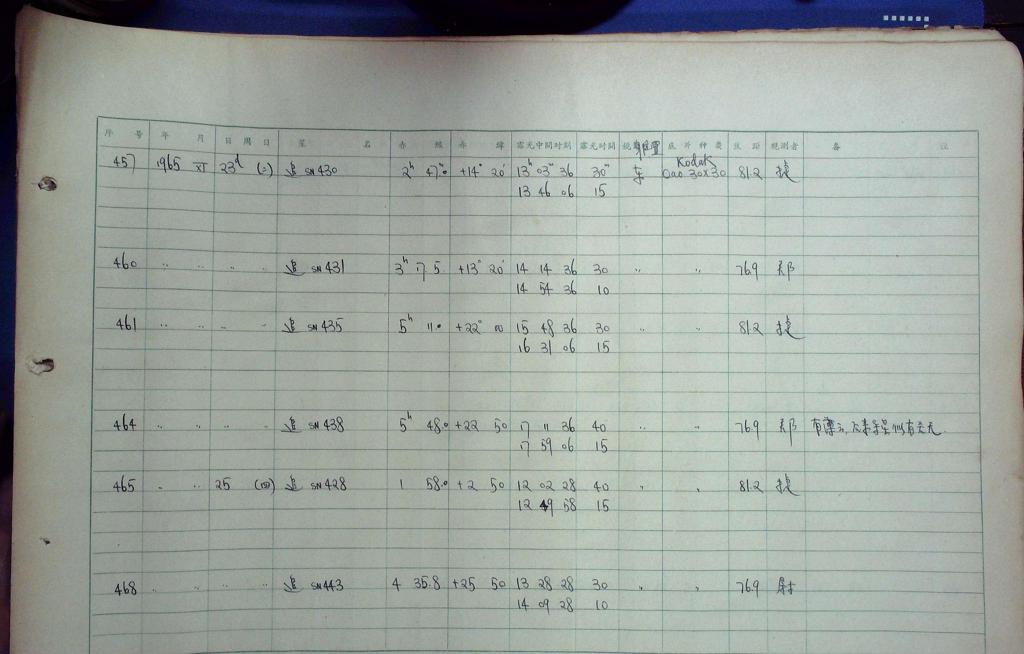 序 号 年 月 日 周 日 星 名 赤 经 赤 纬 露光中间时刻 露光时间 镜 位置 底片种类 焦距 观测者 备 注
457 1965 XI 23d (二) 追 SN430 2h 47m.0 +14° 20' 13h 03m 36 30m 东 Kodak Oao 30x30 81.2 捷
13 46 06 15
460 〃 〃 〃 〃 追 SN431 3h 17.5 +13° 20' 14 14 36 30 〃 〃 76.9 郑
14 54 36 10
461 〃 〃 〃 〃 追 SN435 5h 11.0 +22° 00 15 48 36 30 〃 〃 81.2 捷
16 31 06 15
464 〃 〃 〃 〃 追 SN438 5h 48.0 +22 50 17 11 36 40 〃 〃 76.9 郑 有薄云,
17 59 06 15
465 〃 〃 25 (四) 追 SN428 1 58.0 +2 50 12 02 28 40 〃 〃 81.2 捷
12 49 58 15
468 〃 〃 〃 〃 追 SN443 4 35.8 +25 50 13 28 28 30 〃 〃 76.9
14 09 28 10